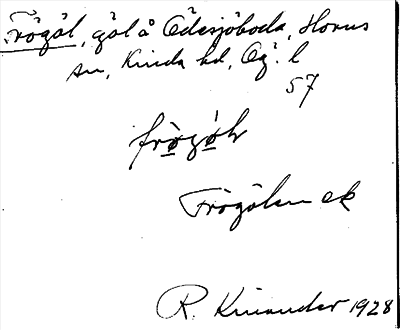 Frögöl, göl å Ödesjöboda, Horns
sn, Kinda hd, Ög. l
57
frògö́ln
Frögölen ek
R. Kinander 1928